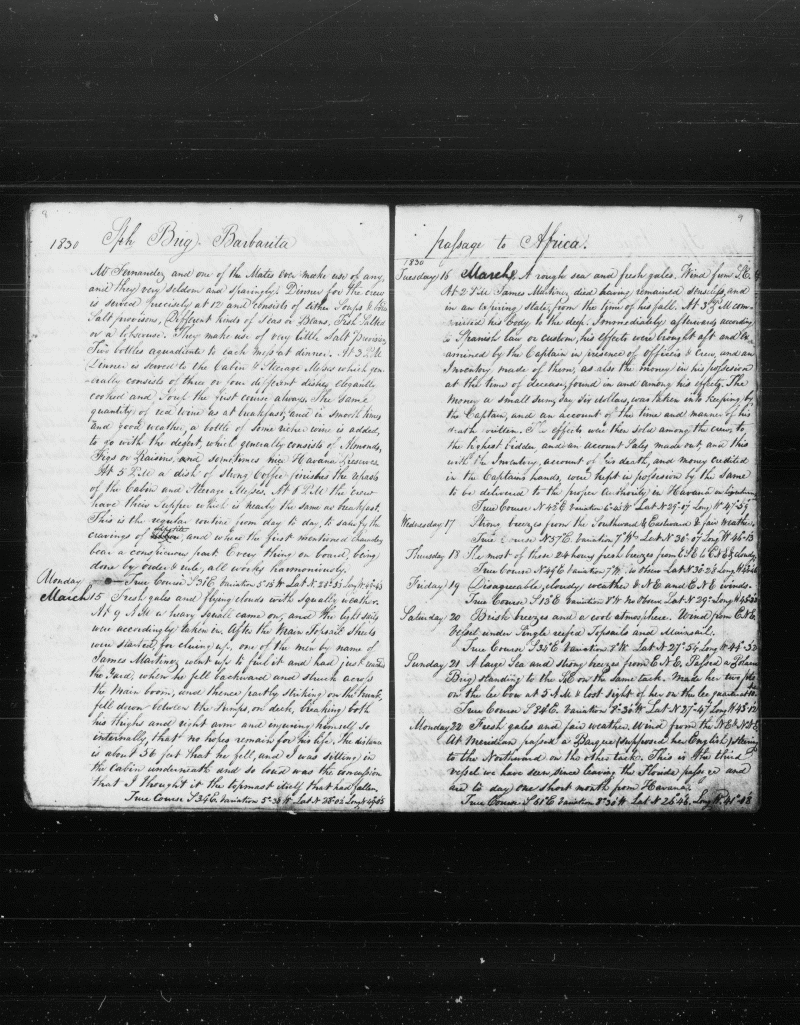 8
1830 Sph Brig. Barbarita
Mr Fernandez and one of the Mates ever make use of any,
and they very seldom and sparingly. Dinner for the crew
is served precisely at 12 and consists of either Soups &
Salt provisons, Different kinds of Peas or Beans, Fresh Salted
or a lobscouse. They make use of very little Salt Provision
Five bottles aquadiente to each mess at dinner. At 3 P.M
Dinner is served to the Cabin & Steerage Messes which gen-
-erally consists of three or four different dishes, elegantly
cooked and Soup the first course always. The same
quantity of red wine as at breakfast, and in smooth times
and good weather, a bottle of some richer wine is added,
to go with the desert, which generally consists of Almonds,
Figs or Raisins, and sometimes nice Havana Preserves.
At 5 P.M a dish of strong Coffee finishes the repasts
of the Cabin and Steerage Messes. At 8 P.M the crew
have their Supper which is nearly the same as breakfast.
This is the regular routine from day to day, to satisfy the
cravings of appetite, and where the first mentioned
bear a conspicuous part. Every thing on board, being
done by order & rule, all works harmoniously.
True Course S 31°E. Variation Lat N Long W
Monday
March 15 Fresh gales and flying clouds with squally weather.
At 9 A M a heavy squall came on, and the light sails
were accordingly taken in. After the Main Topsail Sheets
were started, for cluing up, one of the men by name of
James Martinez went up to furl it and had just
the Yard, when he fell backward and struck across
the Main boom, and thence partly striking on the trunk,
fell down between the Pumps, on deck, breaking both
his thighs and right arm and injuring himself so
internally, that no hopes remain for his life. The distance
is about 36 feet that he fell, and I was sitting in
the Cabin underneath and so loud was the concussion
that I thought it the topmast itself that had fallen.
True Course S 34E. Variation 5°30 W Lat N 28°02 Long W
9
passage to Africa.
1830
Tuesday 16 March A rough sea and fresh gales. Wind from S.E.
At 2 P.M James Martinez died having remained senseless, and
in an expiring state, from the time of his fall. At 3 P.M com-
-mitted his body to the deep. Immediately afterwards according
to Spanish law or custom, his effects were brought aft and Ex-
amined by the Captain in presence of officers & Crew, and an
Inventory made of them, as also the money in his possession
at the time of decease, found in and among his effects. The
money a small sum, say Six dollars, was taken into keeping by
the Captain, and an account of the time and manner of his
death written. The effects were then sold among the crew, to
the highest bidder, and an account Sales made out and this
with the Inventory, account of his death, and money credited
in the Captains hands, were kept in possession by the same
to be delivered to the proper Authority in Havana or
True Course N 45°E Variation 6°45 W Lat N 29°07 Long W 47°59
Wednesday 17 Strong breezes from the Southward & Eastward & fair weather.
True Course N 57°E. Variation 7°W Lat N 30°07 Long W 46°13
Thursday 18 The most of these 24 hours fresh breezes from E S E to E & cloudy
True Course N 49°E Variation 7°W. no Observ Lat N 30°28 Long W
Friday 19 Disagreeable, cloudy weather & N E and E N E winds.
True Course S 13°E Variation 8°W No Observ Lat N 29° Long W
Saturday 20 Brisk breezes and a cool atmosphere. Wind from E N E.
Vessel under single reefed Topsails and Mainsail.
True Course S 35°E Variation 8°W. Lat N 27°54 Long W 44°52
Sunday 21 A large Sea and strong breezes from E N E. Passed a
Brig standing to the S E on the same tack. Made her two
on the lee bow at 5 A M & lost sight of her on the lee quarter at 10.
True Course S 84E. Variation 8°36 W Lat N 27°47 Long W 43°12
Monday 22 Fresh gales and fair weather. Wind from the N E &
At Meridian passed a Barque (supposed her English) steering
to the Northward on the other tack. This is the third
vessel we have seen since leaving the Florida passage and
are to day one short month from Havana.
True Course S 51°E Variation 8°30 W Lat N 26°46. Long W. 41°48